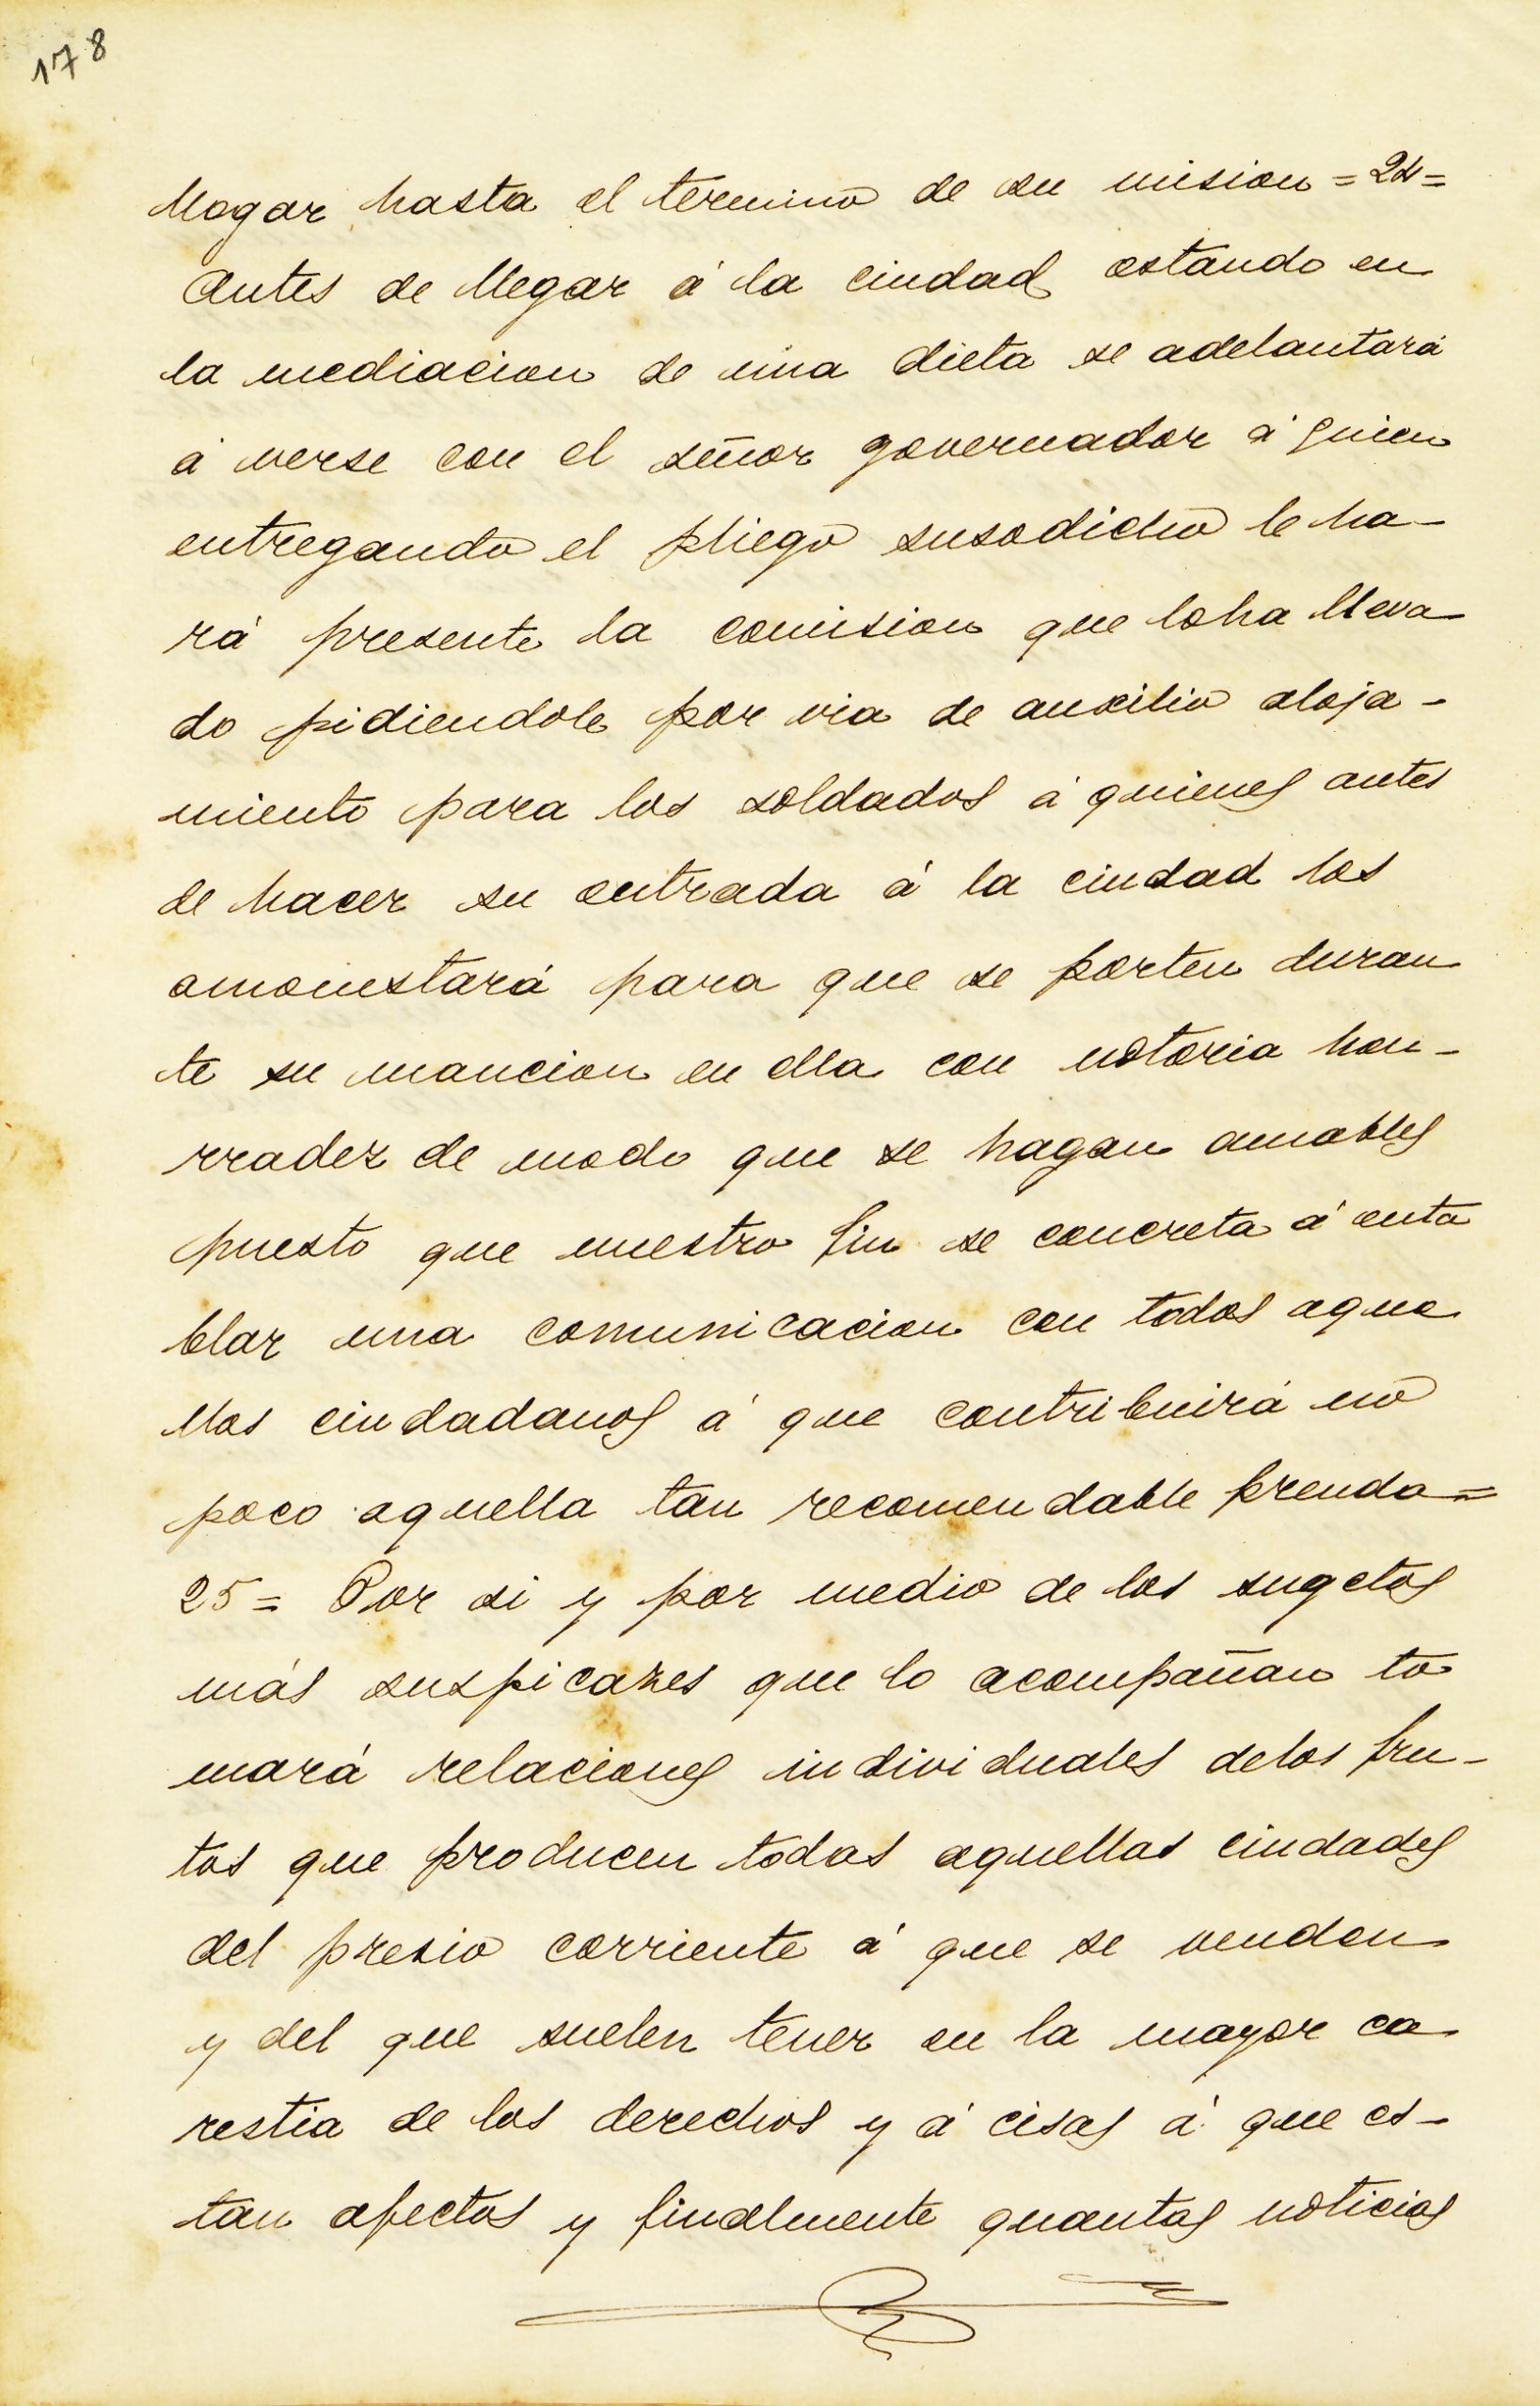 178
llogar hasta el termino de su mision = 24 =
Antes de llegar á la ciudad estando en
la mediacion de una dieta se adelantará
á verse con el señor governador á quien
entregando el pliego susodicho le ha-
rá presente la comision que loha lleva
do pidiendole por via de auxilio aloja-
miento para los soldados á quienes antes
de hacer su entrada á la ciudad los
amonestará para que se porten duran
te su mancion en ella con notoria hon-
rradez de modo que se hagan amables
puesto que nuestro fin se concreta á enta
blar una comunicacion con todos aque
llos ciudadanos á que contribuirá no
poco aquella tan recomendable prenda =
25 = Por si y por medio de los sugetos
más suspicazes que lo acompañan to
mará relaciones individuales delos fru-
tos que producen todas aquellas ciudades
del presio corriente á que se venden
y del que suelen tener en la mayor ca
restia de los derechos y á cisas á que es-
tan afectos y finalmente quantas noticias